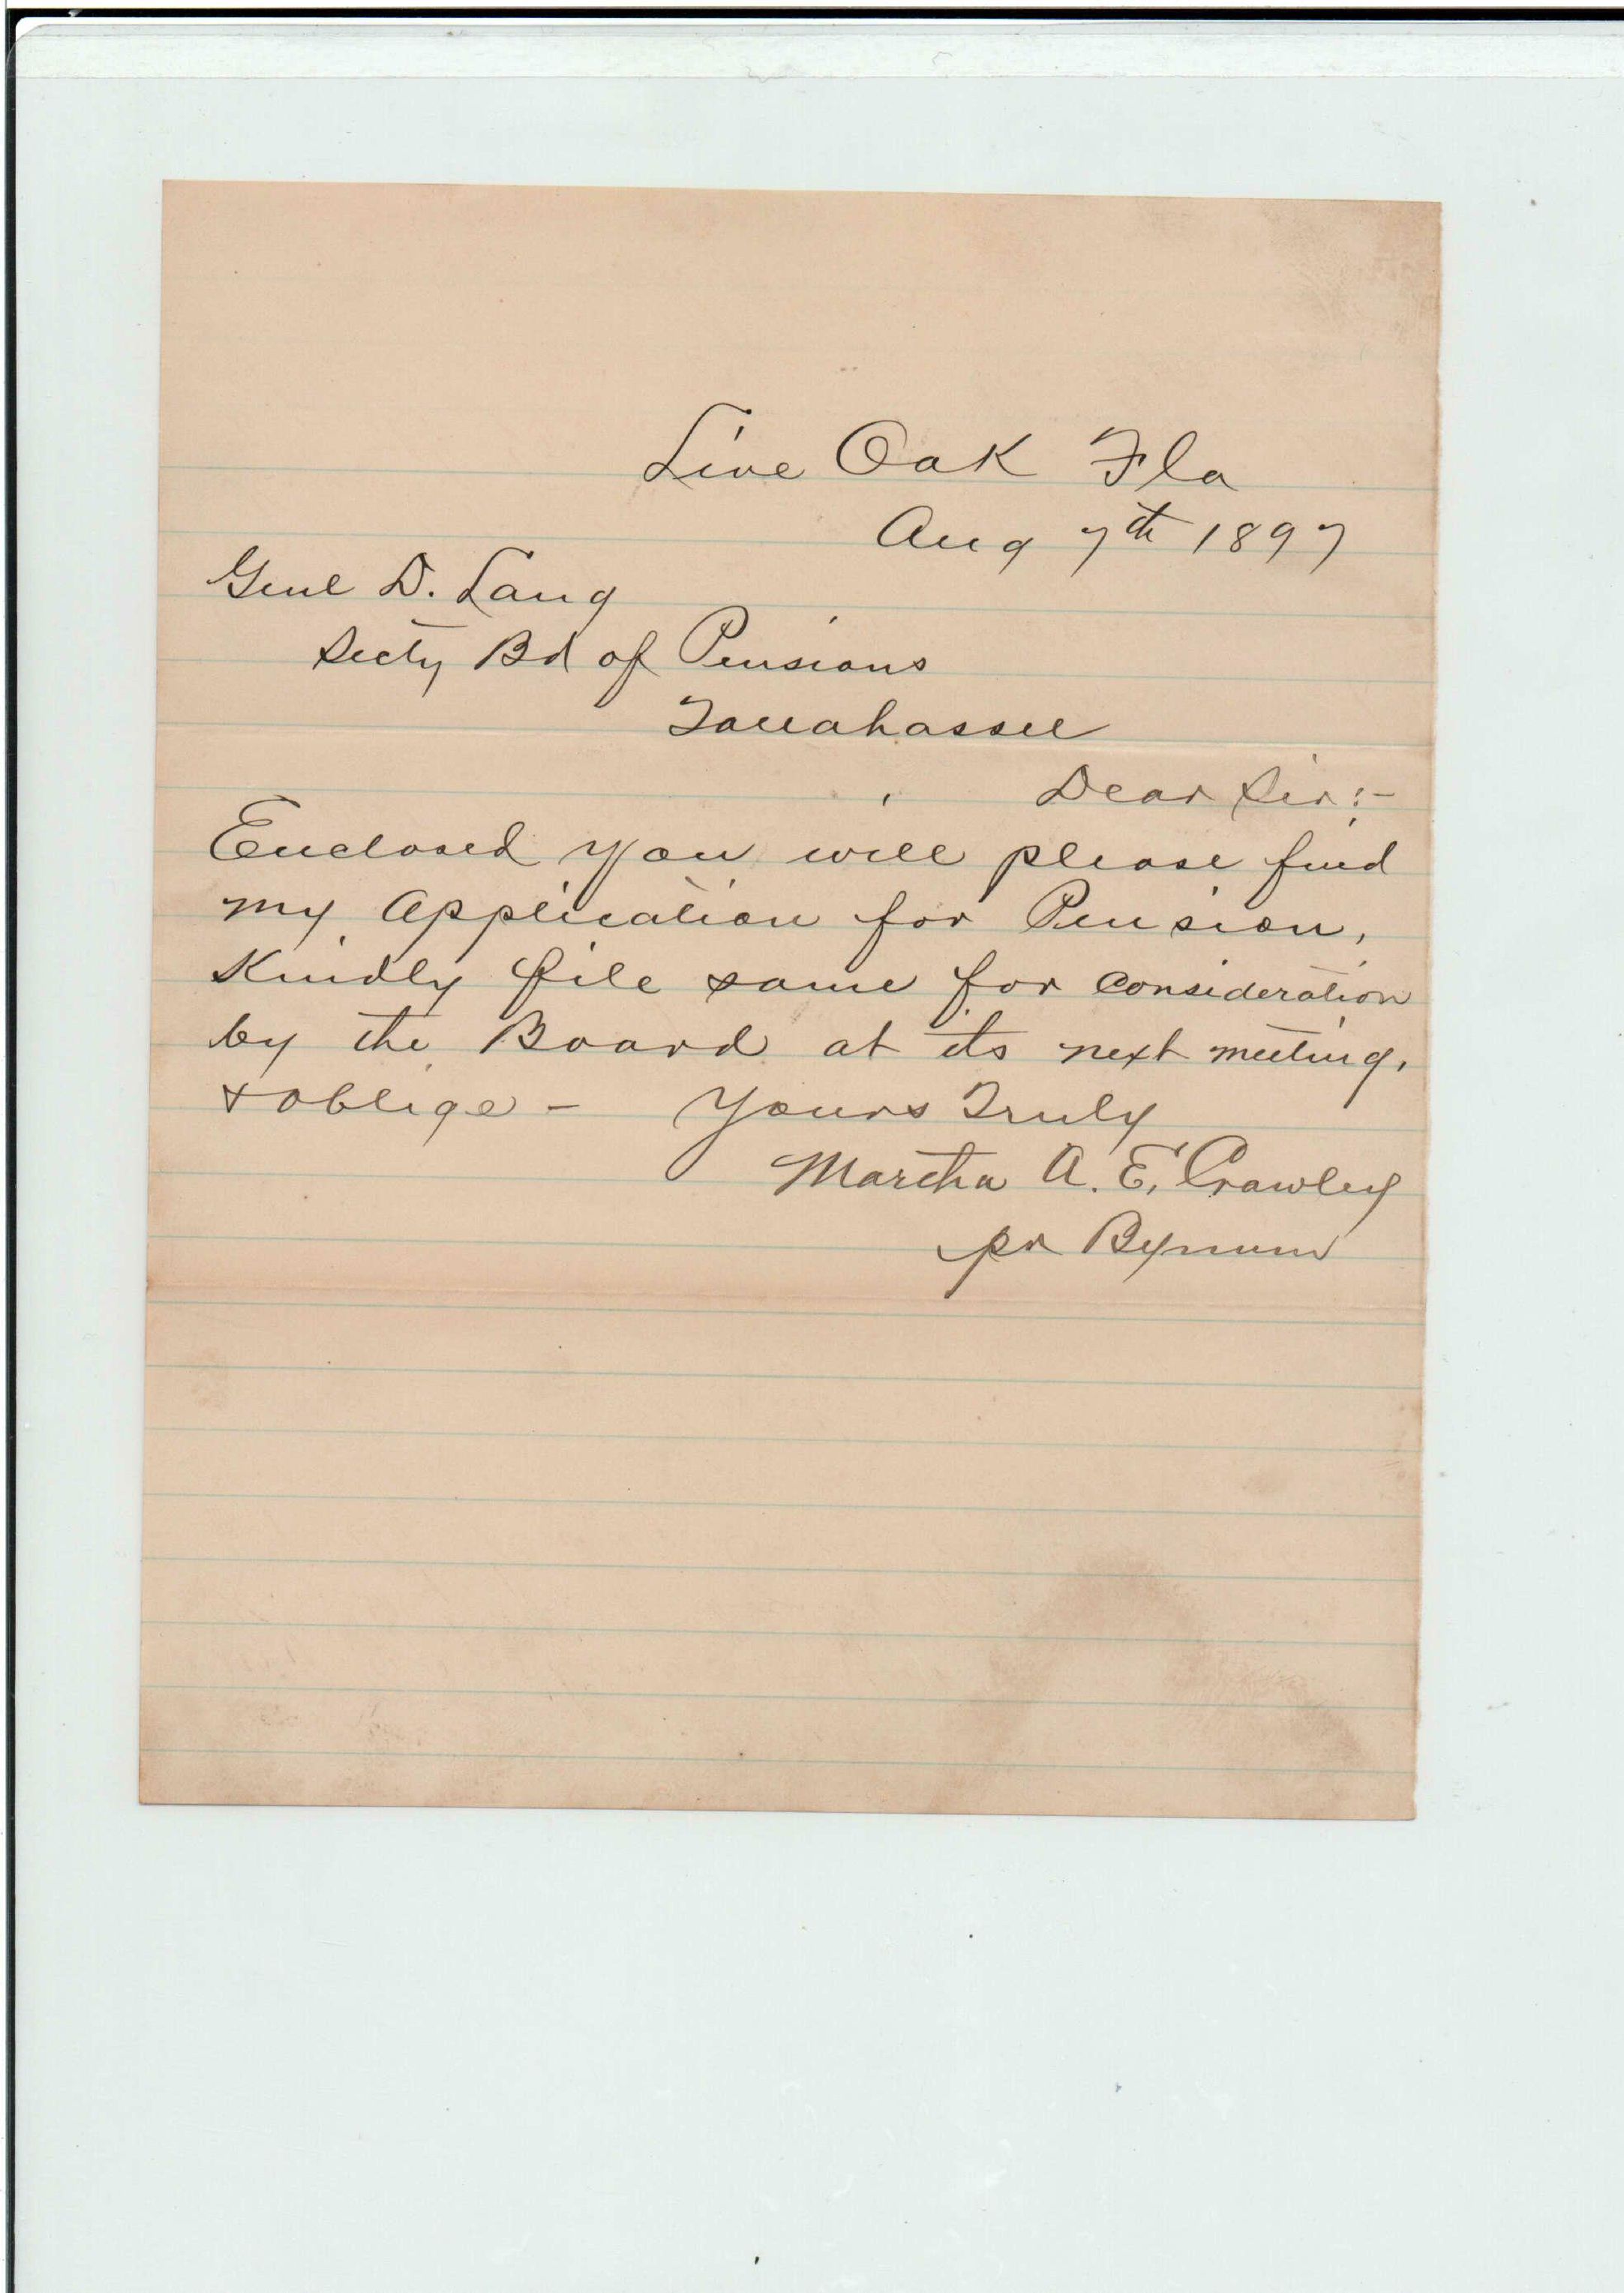 Live Oak Fla
Aug 7th 1897
Genl D. Lang
Secty Bd of Pensions
Tallahassee
Dear Sir:-
Enclosed you will please find
my Application for Pension,
Kindly file same for consideration
by the Board at its next meeting,
& oblige - Yours Truly
Martha A. E. Crawley
pr Bynum